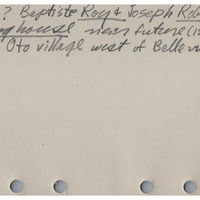 ? Baptiste Roy & Joseph Ro
house near future (1
Oto village west of Bellev